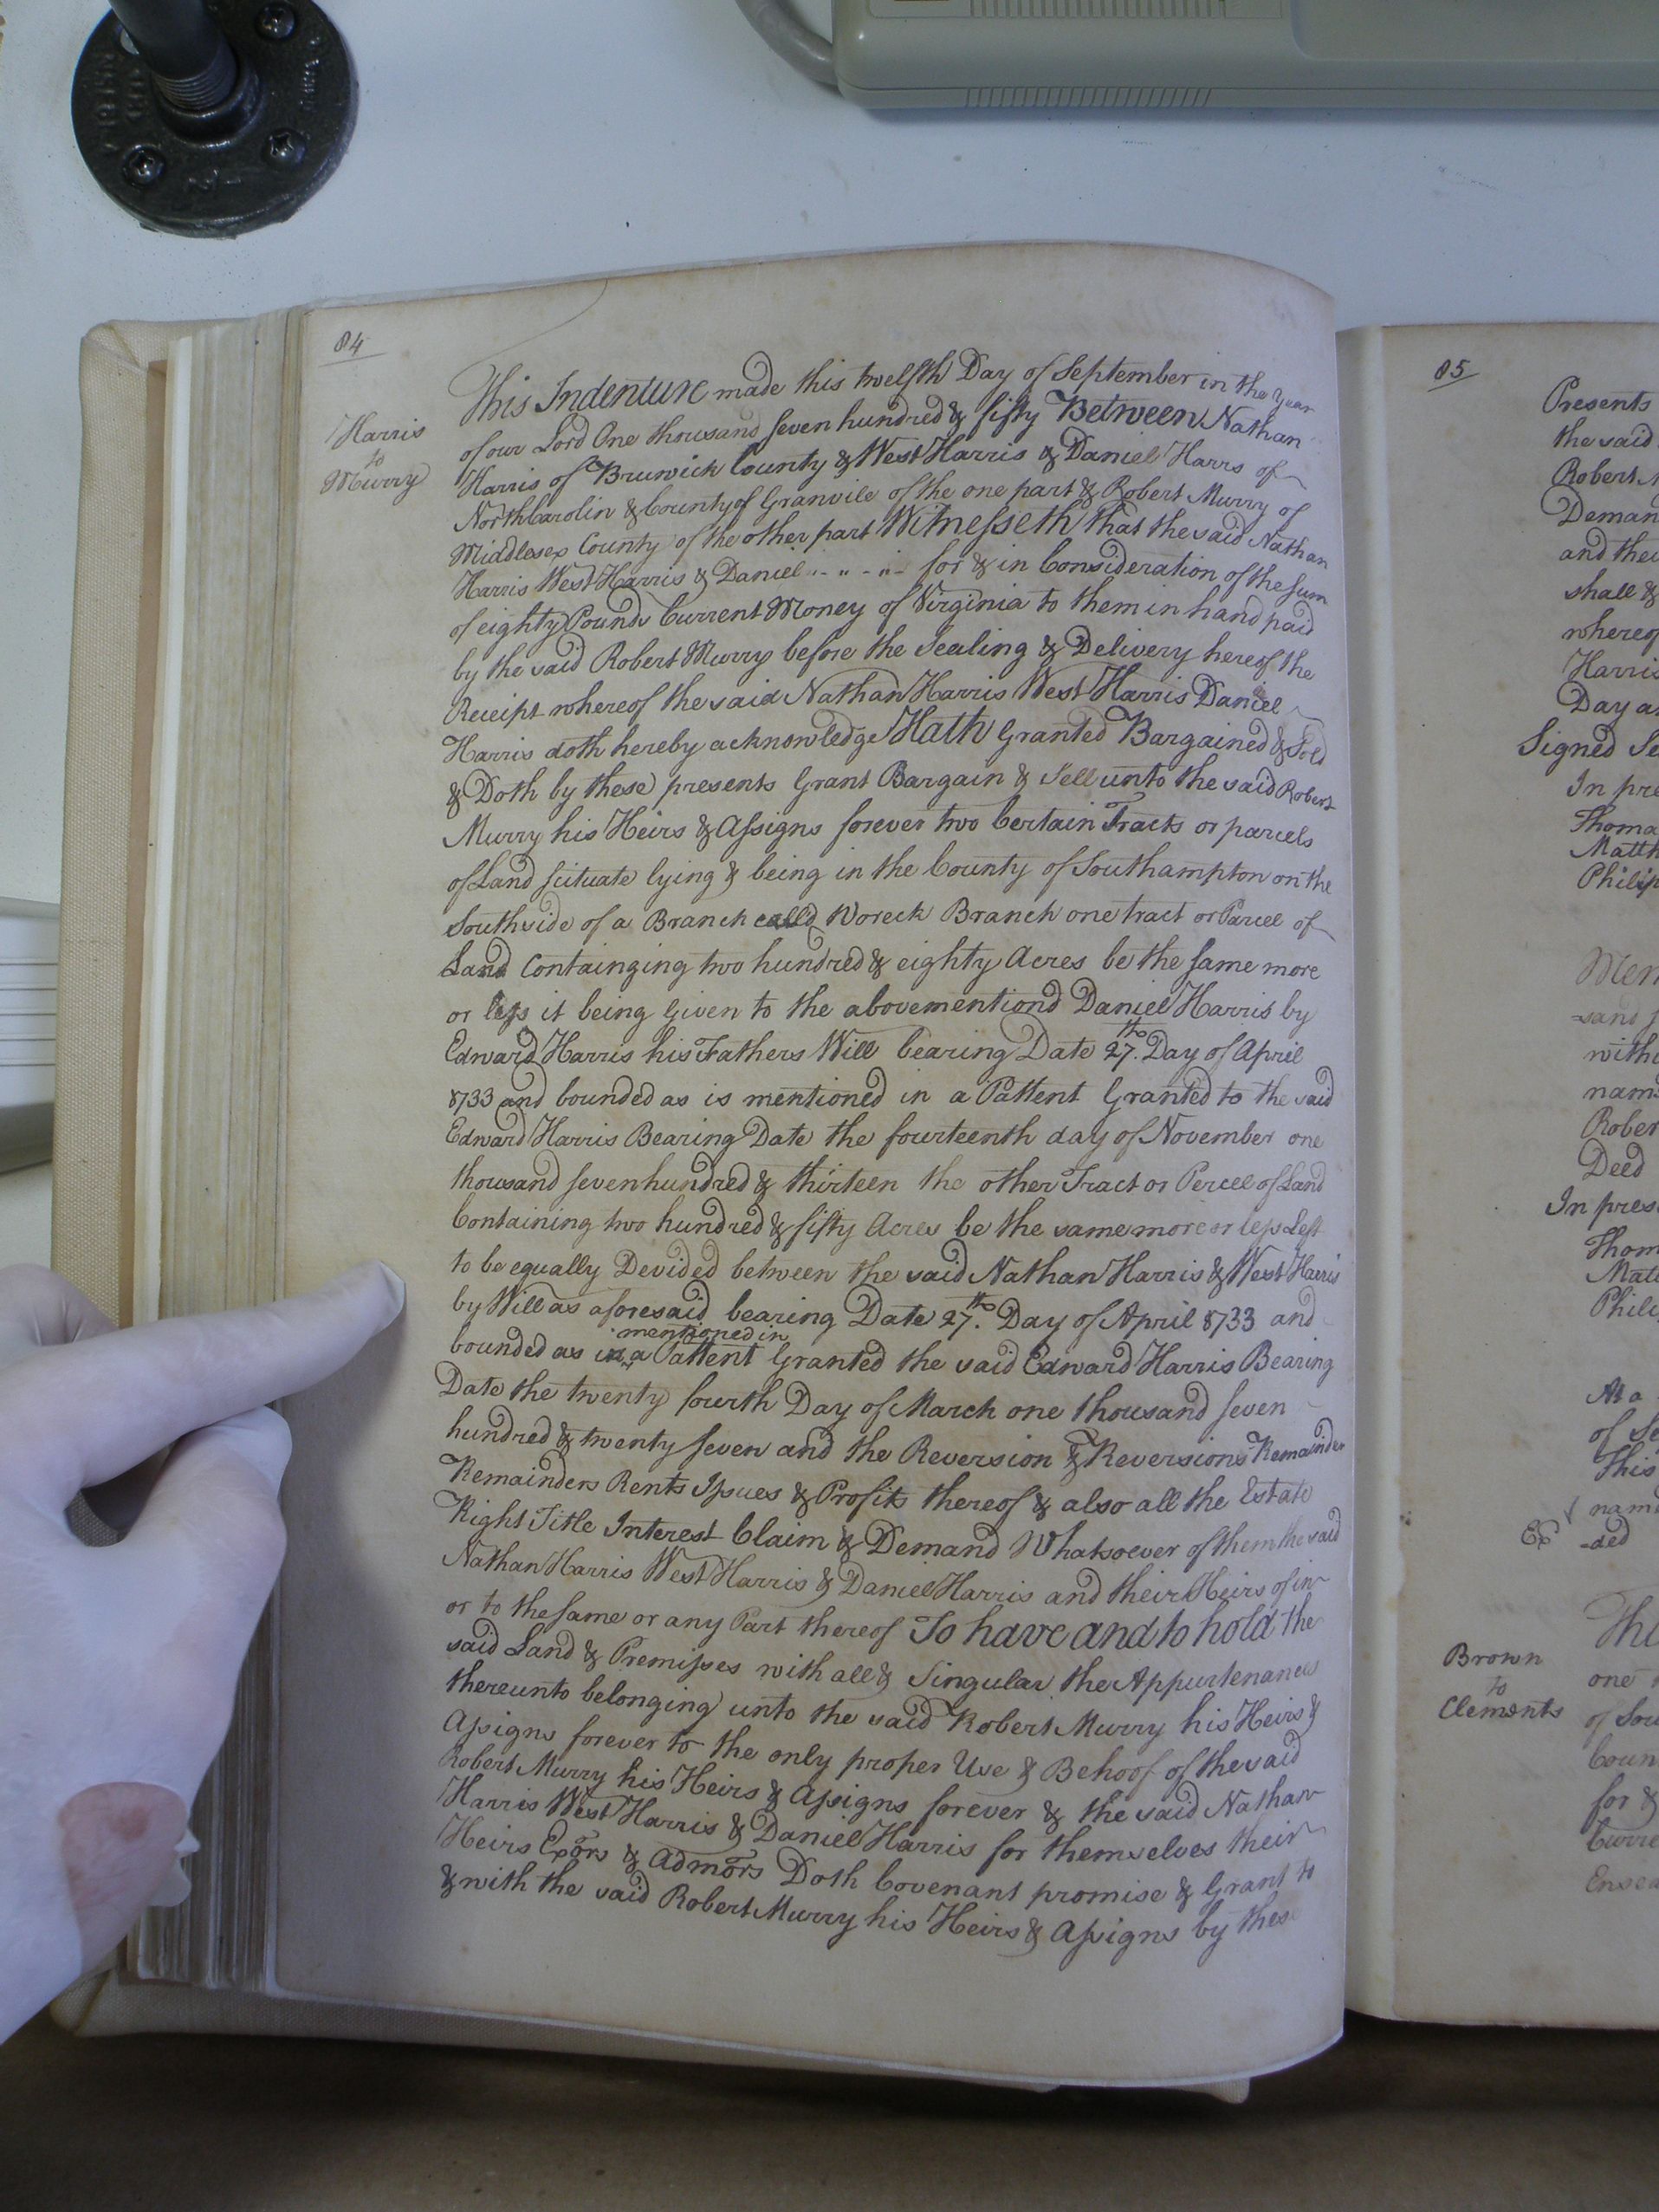 84
Harris
to
Murry
This Indenture made this twelfth Day of September in the Year
of our Lord One thousand seven hundred & fifty Between Nathan
Harris of Bruwick County & West Harris & Daniel Harrs of
North Carolin & County of Granvile of the one part & Robert Murry of
Middlesex County of the other part Witnesseth that the said Nathan
Harris West Harris & Daniel for & in Consideration of the sum
of eighty Pounds Current Money of Virginia to them in hand paid
by the said Robert Murry before the Sealing & Delivery hereof the
Receipt whereof the said Nathan Harris West Harris Daniel
Harris doth hereby acknowledge Hath Granted Bargained & Sold
& Doth by these presents Grant Bargain & Sell unto the said Robert
Murry his Heirs & Assigns forever two Certain Tracts or parcels
of Land scituate lying & being in the County of Southampton on the
Southside of a Branch calld Woreck Branch one tract or Parcel of
Land Containging two hundred & eighty Acres be the same more
or less it being Given to the abovementiond Daniel Harris by
Edward Harris his Fathers Will bearing Date 27.th Day of April
8733 and bounded as is mentioned in a Pattent Granted to the said
Edward Harris Bearing Date the fourteenth day of November one
thousand seven hundred & thirteen the other Tract or Percel of Land
Containing two hundred & fifty Acres be the same more or less Left
to be equally Devided between the said Nathan Harris & West Harris
by Will as aforesaid bearing Date 27.th Day of April 8733 and
mentioned in
bounded as in a Pattent Granted the said Edward Harris Bearing
Date the twenty fourth Day of March one thousand seven
hundred & twenty seven and the Reversion & Reversions Remainder
Remainders Rents Issues & Profits thereof & also all the Estate
Right Title Interest Claim & Demand Whatsoever of them the said
Nathan Harris West Harris & Daniel Harris and their Heirs of in
or to the same or any Part thereof To have and to hold the
said Land & Premisses with all & Singular the Appurtenances
thereunto belonging unto the said Robert Murry his Heirs &
Assigns forever to the only proper Use & Behoof of the said
Robert Murry his Heirs & Assigns forever & the said Nathan
Harris West Harris & Daniel Harris for themselves their
Heirs Exors & Admors Doth Covenant promise & Grant to
& with the said Robert Murry his Heirs & Assigns by these
85
Presents
the said
Robert
Deman
and thei
shall &
whereof
Harris
Day a
Signed Se
In pre
Thoma
Matth
Philip
Mem
-sand
withi
nam
Rober
Deed
In pres
Thom
Matt
Phili
At a
of Se
This
nam
-ded
Brown
to
Clements
Thi
one
of Sou
Coun
for &
Curre
Ensea